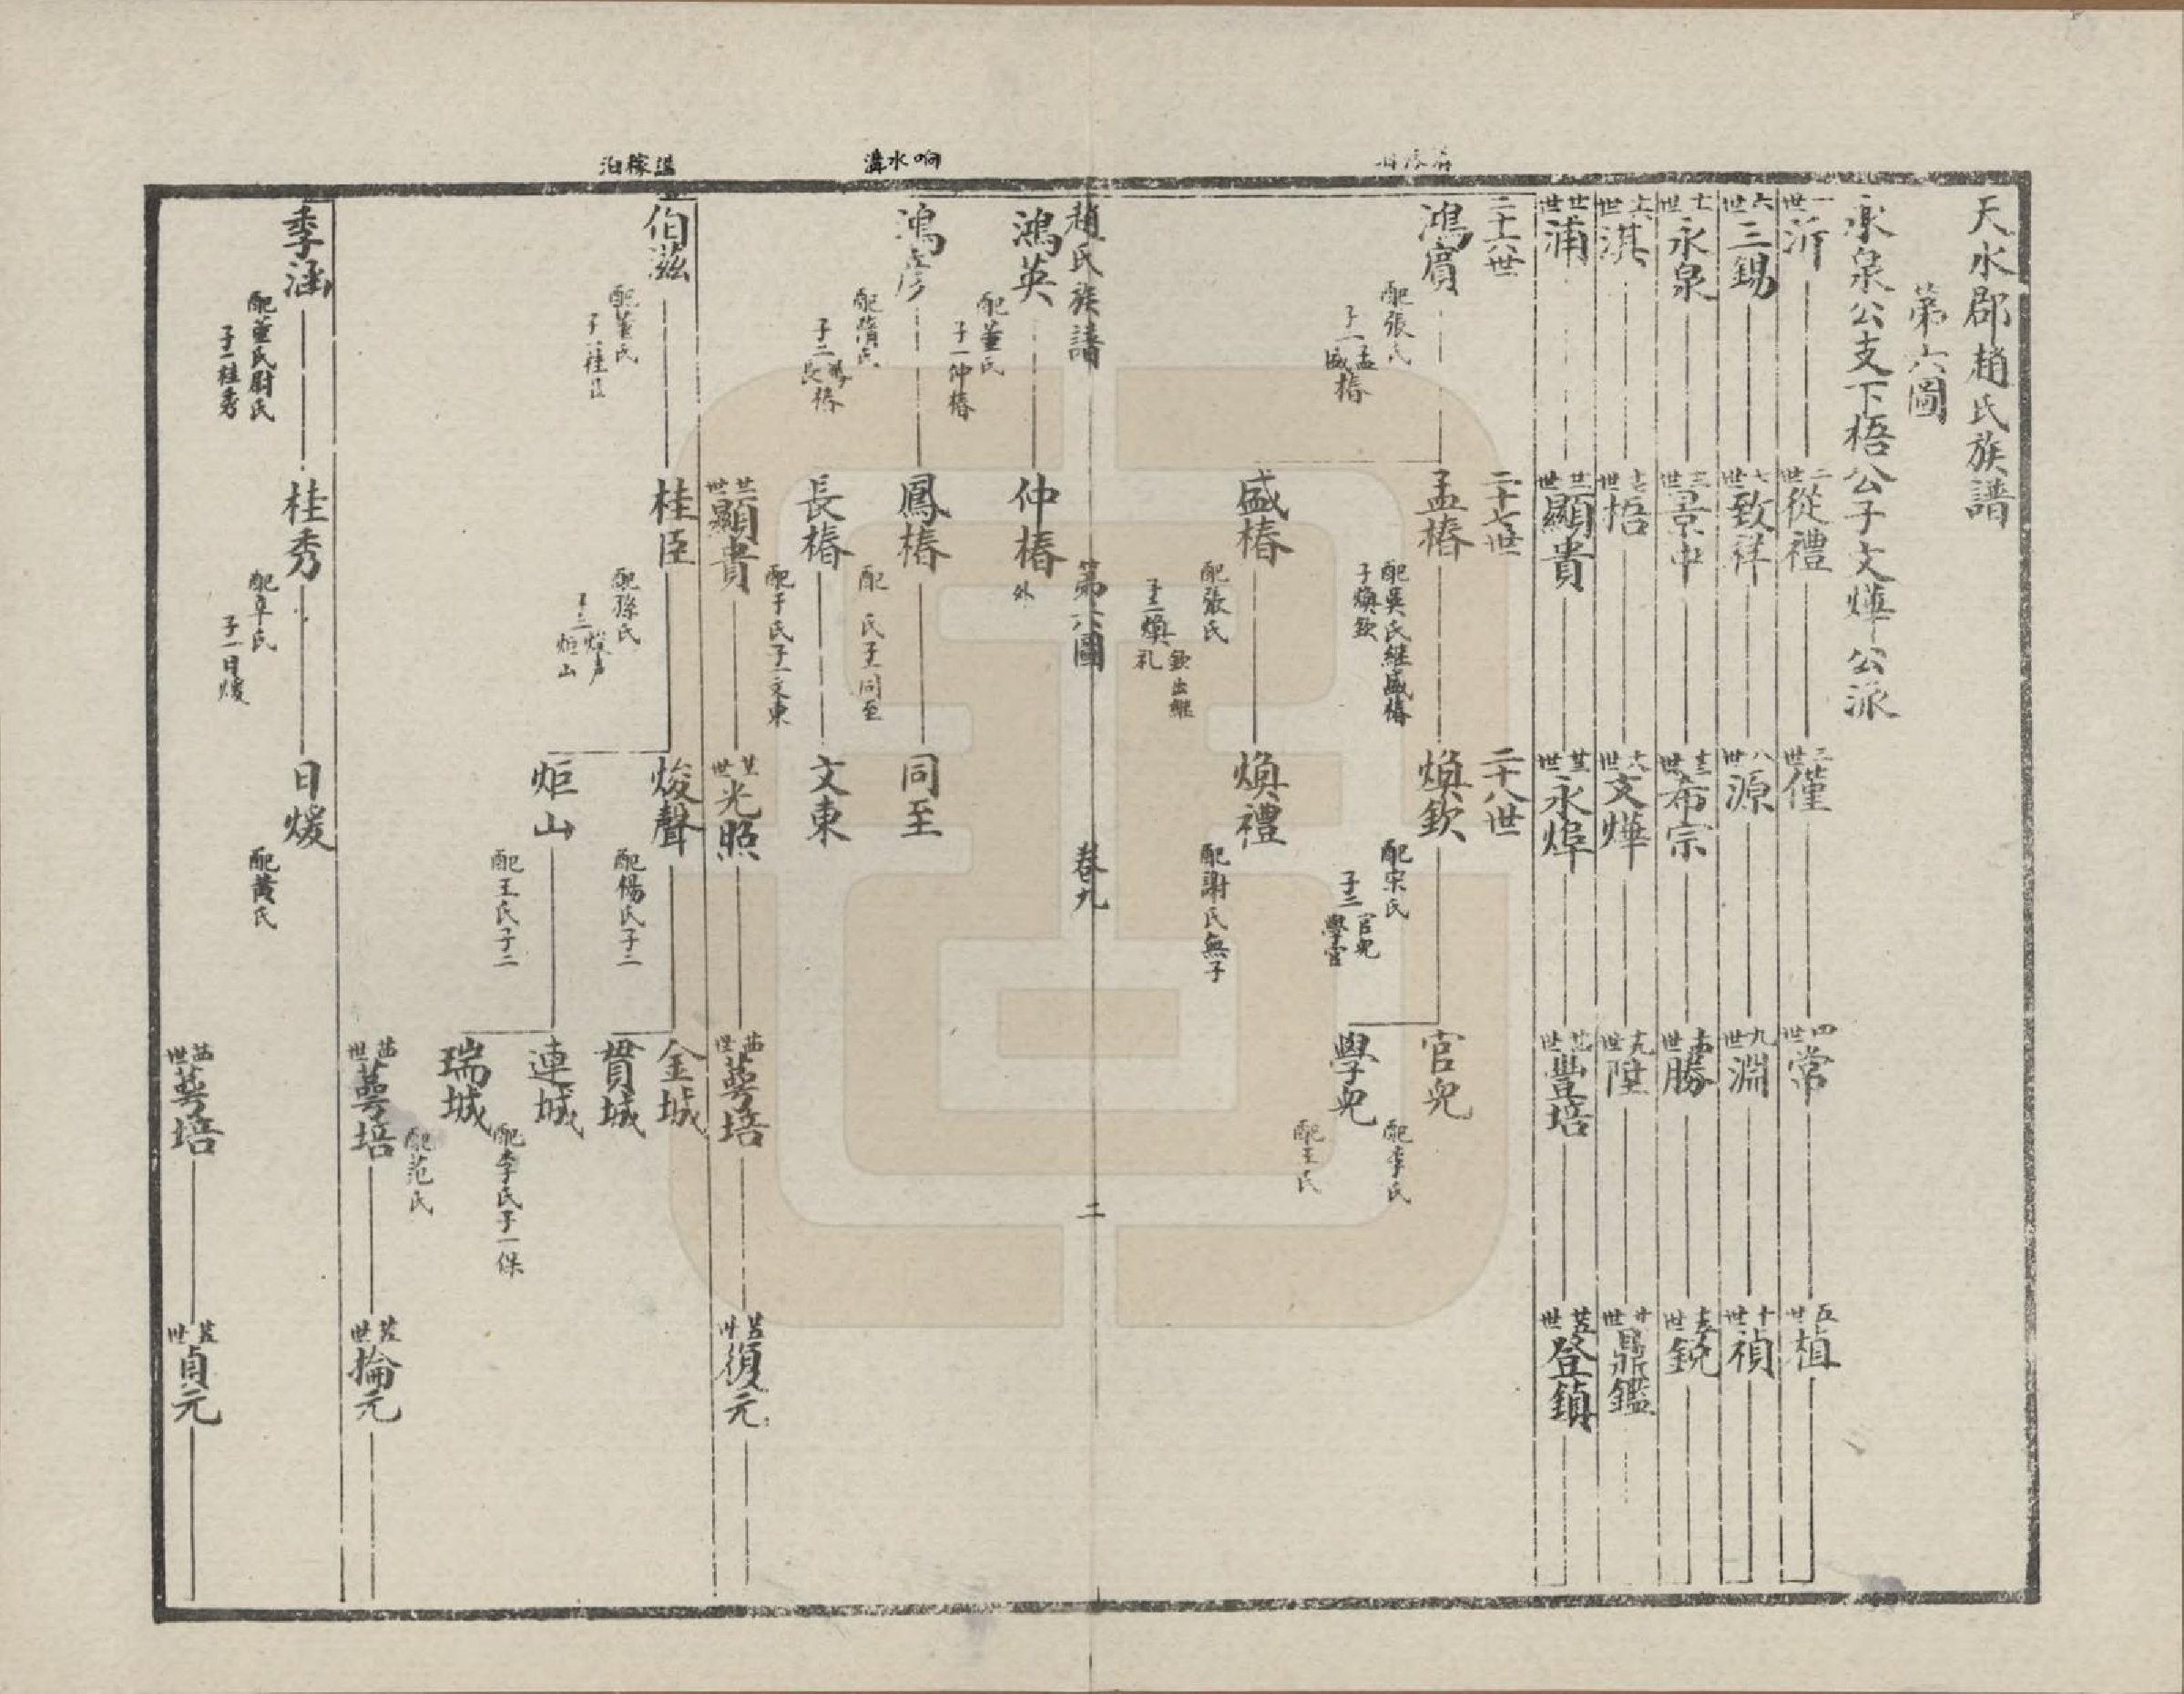 天水郡趙氏族譜
第六圖
永泉公支下梧公子文燁公派
一世沂
二世從禮
三世僅
四世常
五世植
六世三錫
七世致祥
八世源
九世淵
十世禎
十一世永泉
十二世景中
十三世希宗
十四世勝
十五世銳
十六世淇
十七世梧
十八世文燁
十九世陞
廿世鼎鑑
廿一世浦
廿二世顯貴
廿三世永埠
廿四世豐培
廿五世登鎮
二十六世
二十七世
二十八世
鴻賓
配張氏
子二孟椿盛椿
孟椿
配吳氏繼盛椿
子煥欽
煥欽
配宋氏
子二官兒學官
官兒
配李氏
學兒
配王氏
盛椿
配張氏
子二煥礼欽出繼
煥禮
配謝氏無子
趙氏族譜
第六圖
卷九
二
鴻英
配董氏
子一仲椿
仲椿外
响水溝
鴻彥
配隋氏
子二鳳椿長椿
鳳椿
配 氏子一同至
同至
長椿
配于氏子一文東
文東
廿二世顯貴
廿三世光照
廿四世萼培
廿五世復元
稼泊
伯滋
配董氏
子一桂臣
桂臣
配孫氏
子二焌声炬山
焌聲
配楊氏子二
金城
貫城
炬山
配王氏子二
連城
配李氏子一保
瑞城
配范氏
廿四世萼培
廿五世掄元
季涵
配董氏尉氏
子一桂秀
桂秀
配卓氏
子一日煖
日煖
配黃氏
廿四世萼培
廿五世貞元